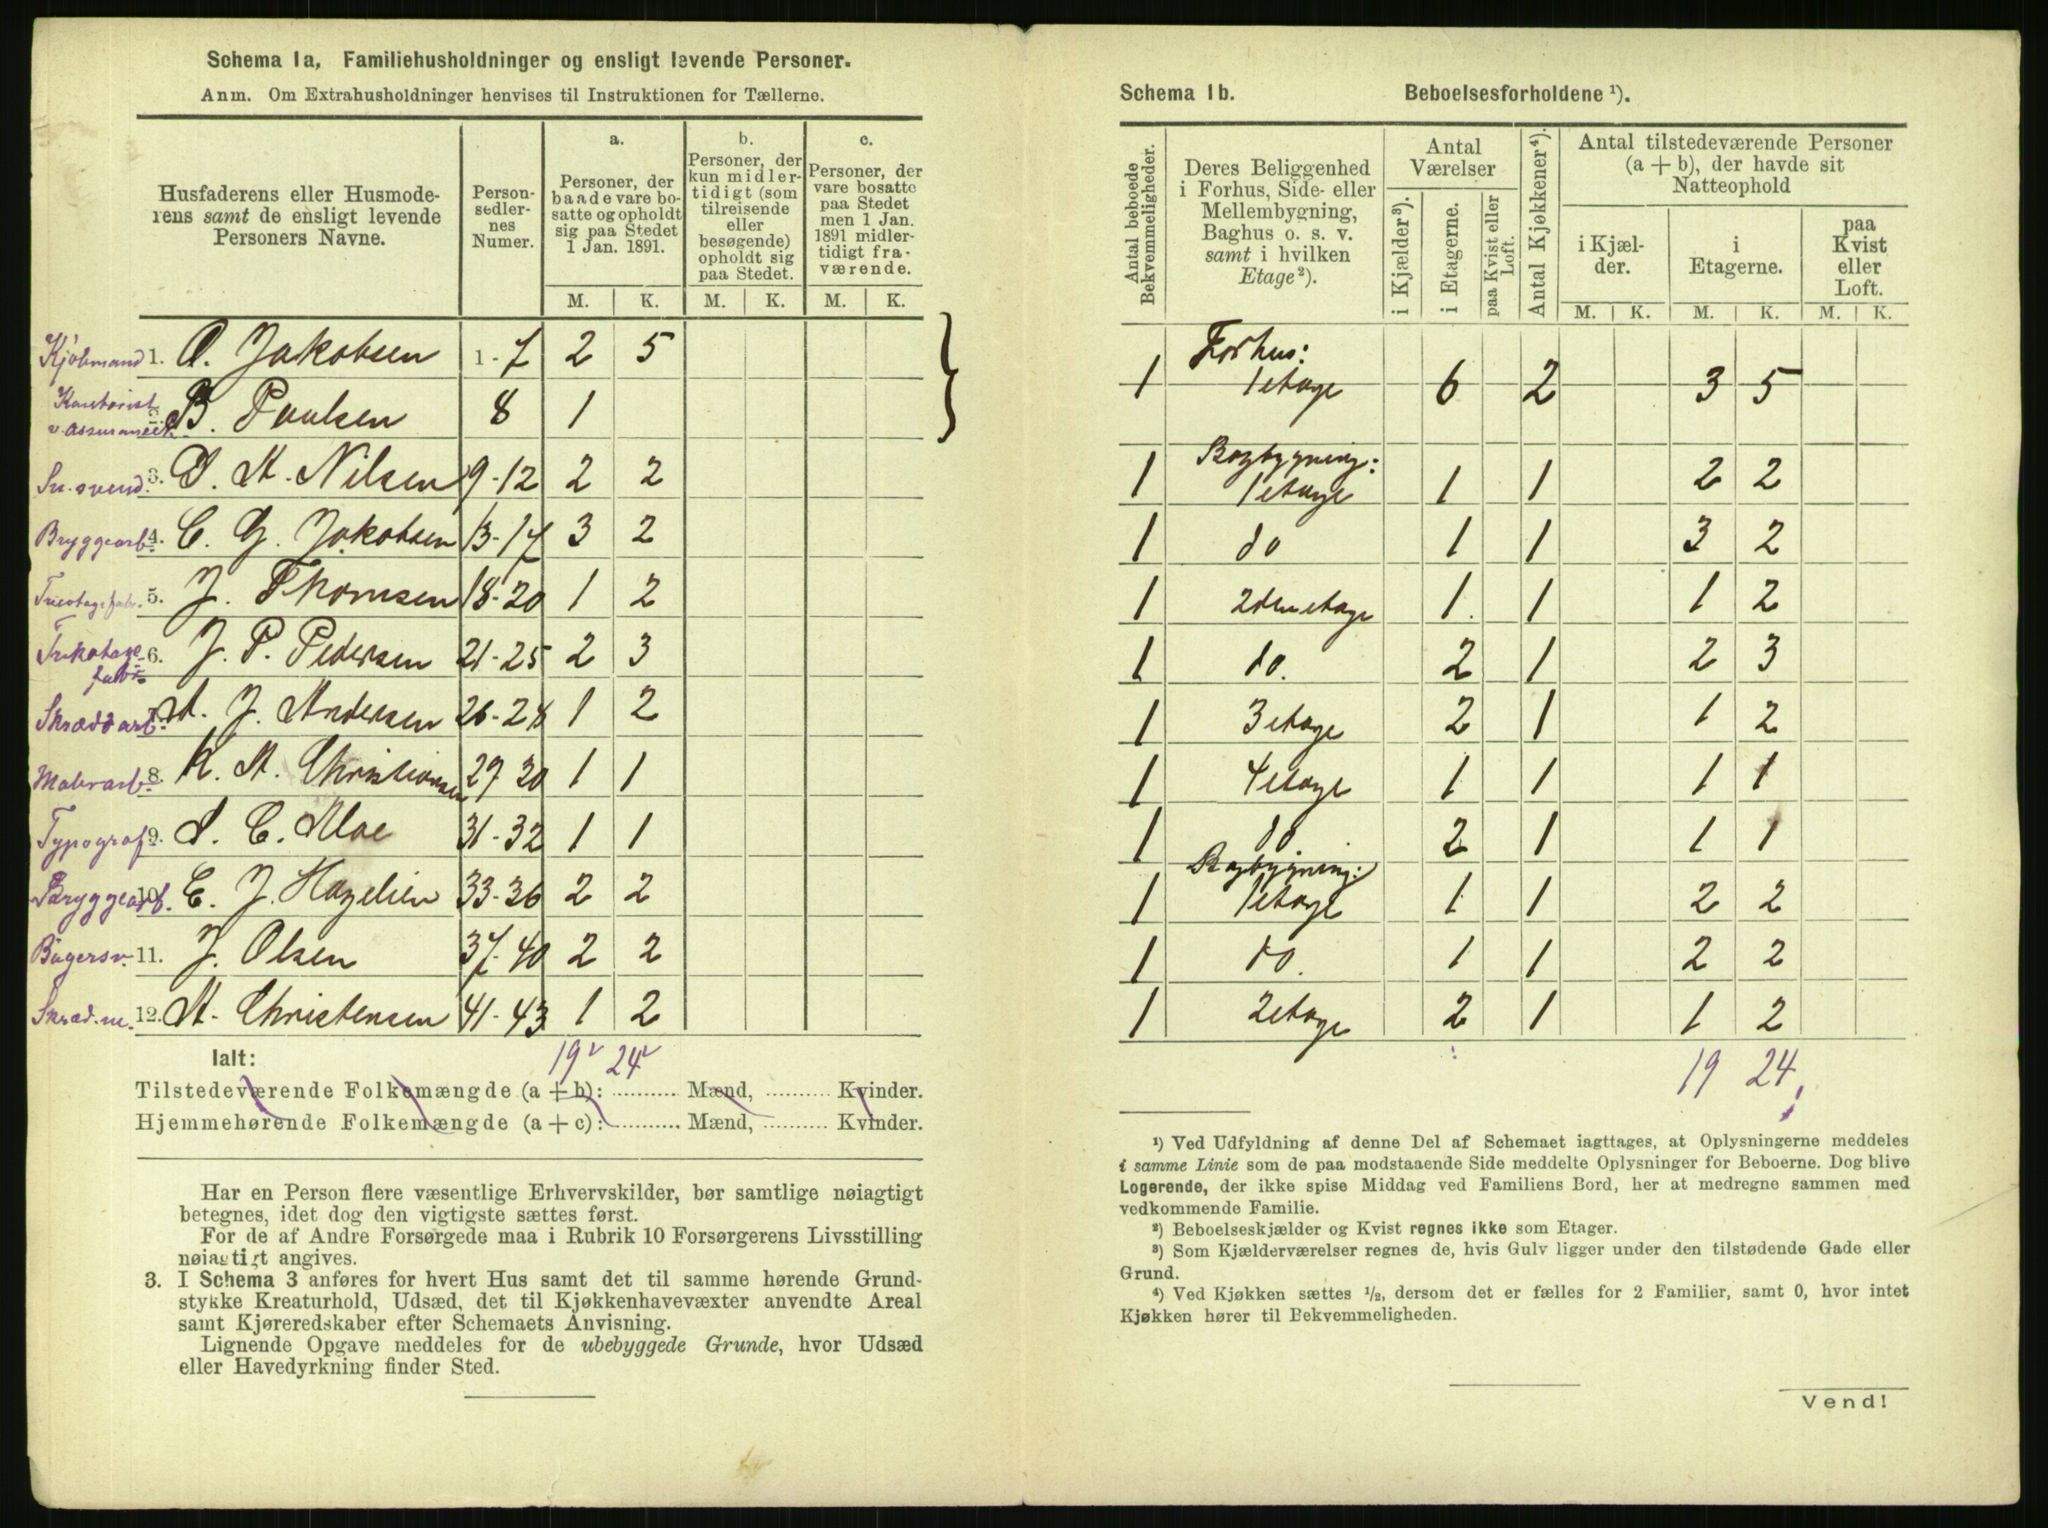 Schema 1a, Familiehusholdninger og ensligt levende Personer.
Anm. Om Extrahusholdninger henvises til Instruktionen for Tællerne.
Husfaderens eller Husmoderens samt de ensligt levende Personers Navne.
Personsedlernes Numer.
a. Personer, der baade vare bosatte og opholdt sig paa Stedet 1 Jan. 1891.
b. Personer, der kun midlertidigt (som tilreisende eller besøgende) opholdt sig paa Stedet.
c. Personer, der vare bosatte paa Stedet men 1 Jan. 1891 midlertidigt fraværende.
M. K. M. K. M. K.
Kjøbmand 1. O. Jakobsen 1-7 2 5
Kontorist v. Assurance B. Paulsen 8 1
Sn.svend. 3. M. Nilsen 9-12 2 2
Bryggearb. 4. C. G. Jakobsen 13-17 3 2
Tricotagefabr. 5. J. Thomsen 18-20 1 2
Trikotage fabr. 6. J. P. Pedersen 21-25 2 3
Skrædd arb. A. J. Andersen 26-28 1 2
Malerarb. 8. K. A. Christiansen 29 30 1 1
Typograf 9. A. C. Moe 31-32 1 1
Bryggearb. 10. C. J. Hagelien 33-36 2 2
Bagersv. 11. J. Olsen 37-40 2 2
Skræd.m. 12. A. Christensen 41-43 1 2
Ialt: 19 24
Tilstedeværende Folkemængde (a + b): .......... Mænd, .......... Kvinder.
Hjemmehørende Folkemængde (a + c): .......... Mænd, .......... Kvinder.
Har en Person flere væsentlige Erhvervskilder, bør samtlige nøiagtigt
betegnes, idet dog den vigtigste sættes først.
For de af Andre Forsørgede maa i Rubrik 10 Forsørgerens Livsstilling
nøiagtigt angives.
3. I Schema 3 anføres for hvert Hus samt det til samme hørende Grund-
stykke Kreaturhold, Udsæd, det til Kjøkkenhavevæxter anvendte Areal
samt Kjøreredskaber efter Schemaets Anvisning.
Lignende Opgave meddeles for de ubebyggede Grunde, hvor Udsæd
eller Havedyrkning finder Sted.
Schema 1b. Beboelsesforholdene ¹).
Antal beboede Bekvemmeligheder.
Deres Beliggenhed i Forhus, Side- eller Mellembygning, Baghus o. s. v. samt i hvilken Etage²).
Antal Værelser
i Kjælder³). i Etagerne. paa Kvist eller Loft.
Antal Kjøkkener⁴).
Antal tilstedeværende Personer (a + b), der havde sit Natteophold
i Kjælder. i Etagerne. paa Kvist eller Loft.
M. K. M. K. M. K.
Forhus:
1 1 etage 6 2 3 5
Bagbygning:
1 1 etage 1 1 2 2
1 do 1 1 3 2
1 2den etage 1 1 1 2
1 do. 2 1 2 3
1 3 etage 2 1 1 2
1 4 etage 1 1 1 1
1 do 2 1 1 1
Bagbygning:
1 1 etage 1 1 2 2
1 do. 1 1 2 2
1 2 etage 2 1 1 2
19 24
¹) Ved Udfyldning af denne Del af Schemaet iagttages, at Oplysningerne meddeles
i samme Linie som de paa modstaaende Side meddelte Oplysninger for Beboerne. Dog blive
Logerende, der ikke spise Middag ved Familiens Bord, her at medregne sammen med
vedkommende Familie.
²) Beboelseskjælder og Kvist regnes ikke som Etager.
³) Som Kjælderværelser regnes de, hvis Gulv ligger under den tilstødende Gade eller
Grund.
⁴) Ved Kjøkken sættes ½, dersom det er fælles for 2 Familier, samt 0, hvor intet
Kjøkken hører til Bekvemmeligheden.
Vend!